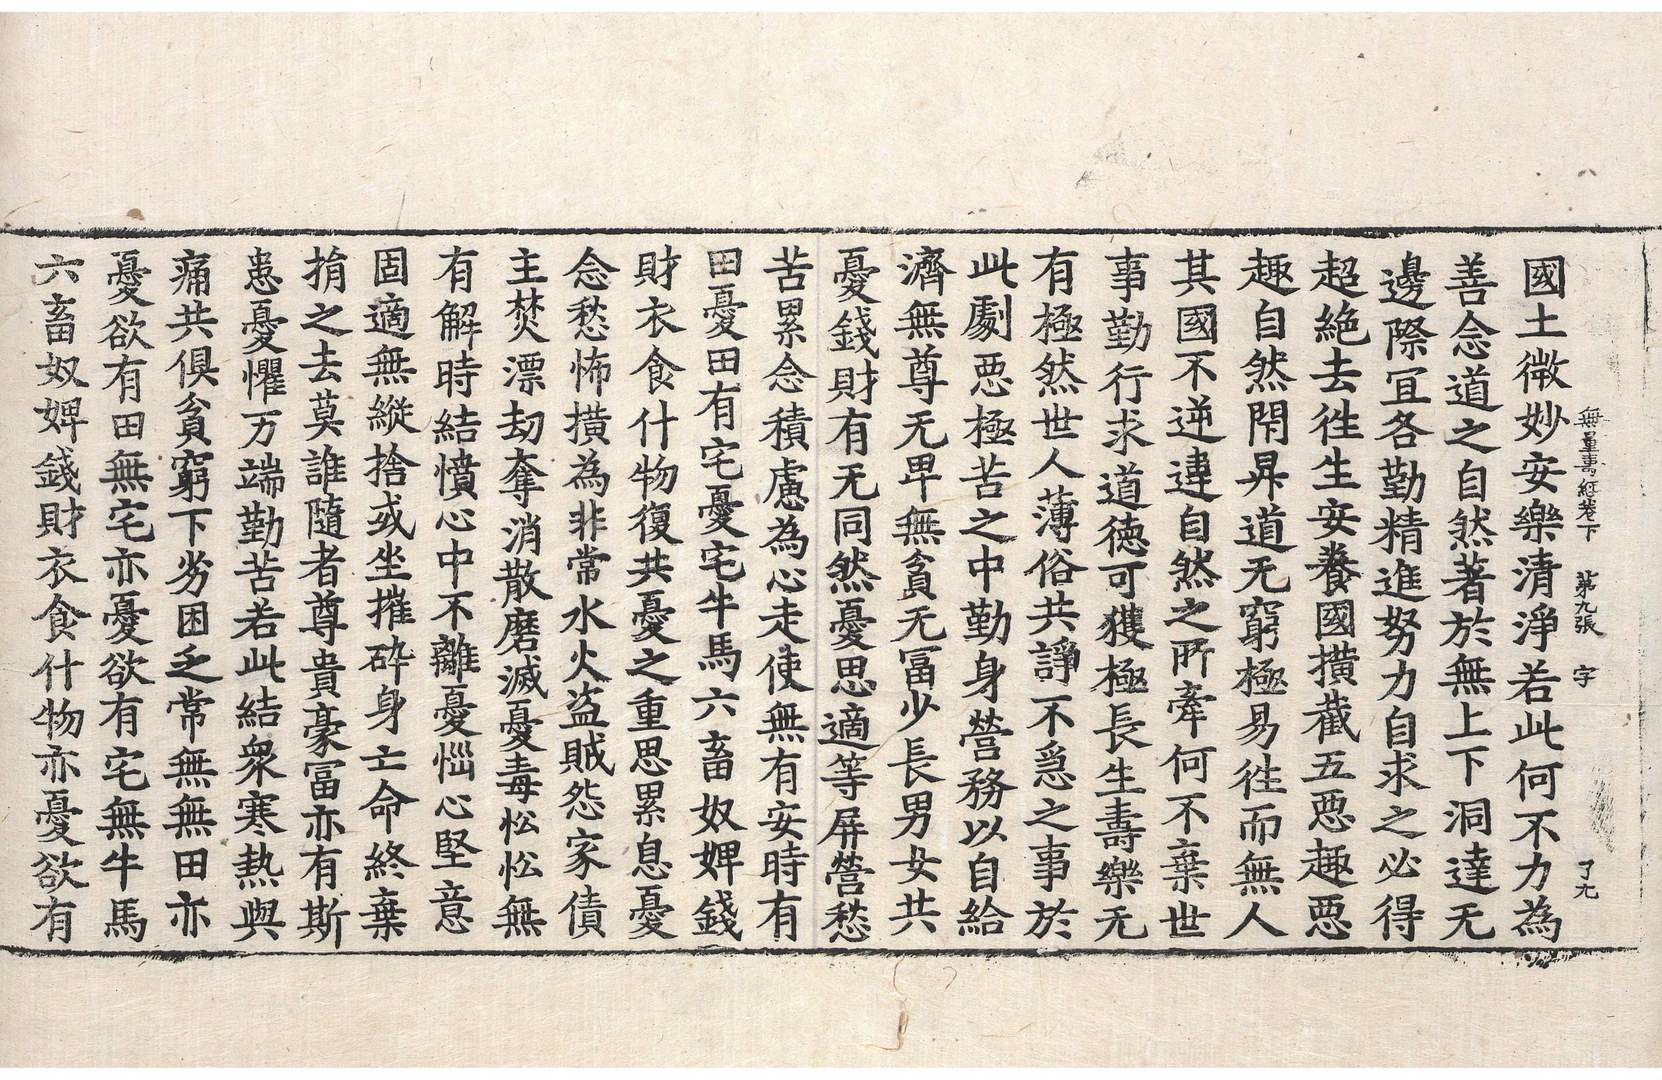 無量壽經卷下　第九張　字　了九
國土微妙安樂清淨若此何不力為
善念道之自然著於無上下洞達无
邊際宜各勤精進努力自求之必得
超絶去往生安養國撗截五惡趣惡
趣自然閇昇道无窮極易往而無人
其國不逆違自然之所牽何不棄世
事勤行求道德可獲極長生壽樂无
有極然世人薄俗共諍不急之事於
此劇惡極苦之中勤身營務以自給
濟無尊无卑無貧无冨少長男女共
憂錢財有无同然憂思適等屏營愁
苦累念積慮為心走使無有安時有
田憂田有宅憂宅牛馬六畜奴婢錢
財衣食什物復共憂之重思累息憂
念愁怖撗為非常水火盗賊怨家債
主焚漂劫奪消散磨滅憂毒忪忪無
有解時結憤心中不離憂惱心堅意
固適無縱捨或坐摧碎身亡命終棄
捐之去莫誰隨者尊貴豪冨亦有斯
患憂懼万端勤苦若此結衆寒熱與
痛共俱貧窮下劣困乏常無無田亦
憂欲有田無宅亦憂欲有宅無牛馬
六畜奴婢錢財衣食什物亦憂欲有